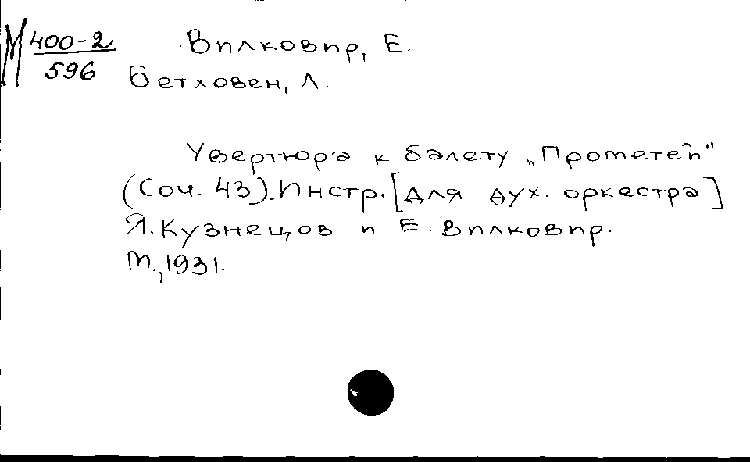 М 400-2
596
Вилковир, Е.
Бетховен, Л.
Увертюра к балету „Прометей"
(Соч. 43). Инстр. [для дух. оркестра]
Я. Кузнецов и Е. Вилковир.
М., 1931.